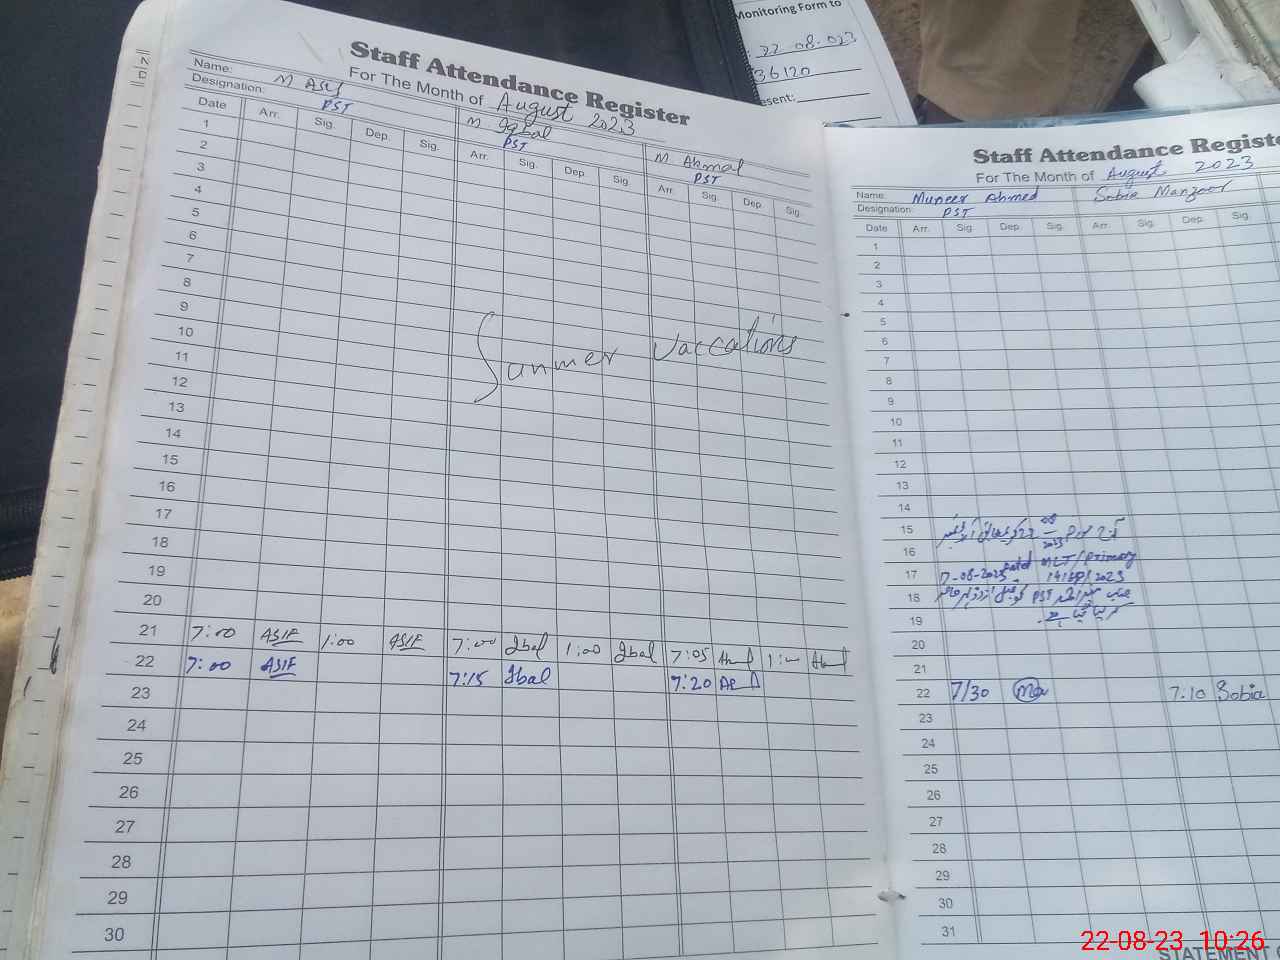 Monitoring Form to
22-08-023
36120
esent:
Staff Attendance Register
For The Month of August 2023
Name: M Asif M Iqbal M Akmal
Designation: PST PST PST
Date Arr. Sig. Dep. Sig. Arr. Sig. Dep. Sig. Arr. Sig. Dep. Sig.
1
2
3
4
5
6
7
8
9
10
11
Summer vaccations
12
13
14
15
16
17
18
19
20
21 7:00 ASIF 1:00 ASIF 7:00 Iqbal 1:00 Iqbal 7:05 1:00
22 7:00 ASIF 7:15 Iqbal 7:20
23
24
25
26
27
28
29
30
Staff Attendance Registe
For The Month of August 2023
Name: Muneer Ahmed Sobia Manzoor
Designation: PST
Date Arr. Sig. Dep. Sig. Arr. Sig. Dep. Sig.
1
2
3
4
5
6
7
8
9
10
11
12
13
14
15
16 MLT/primary
17 17-08-2023 dated
18 PST
19
20
21
22 7/30 7:10 Sobia
23
24
25
26
27
28
29
30
31
STATEMENT
22-08-23 10:26